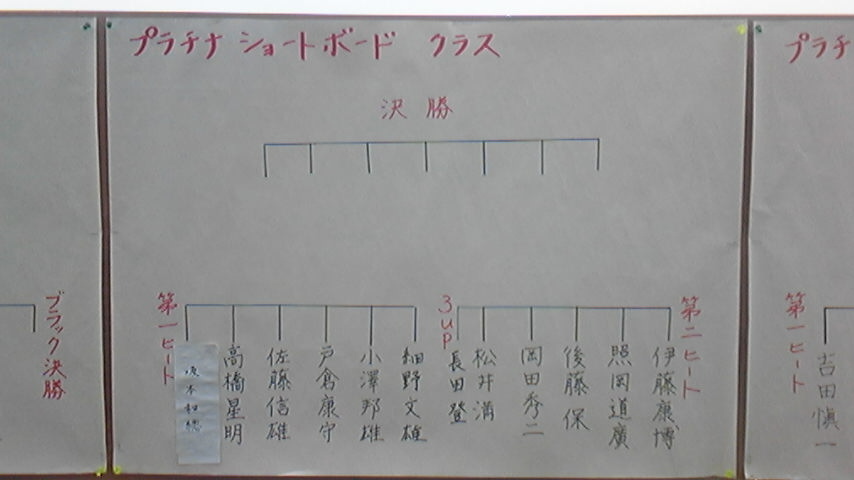 プラチナ ショートボード クラス
決勝
第一ヒート
高橋星明
佐藤信雄
戸倉康守
小澤邦雄
細野文雄
3up
長田登
松井満
岡田秀二
後藤保
照岡道廣
伊藤康博
第二ヒート
ブラック決勝
プラチ
第一ヒート
吉田慎一